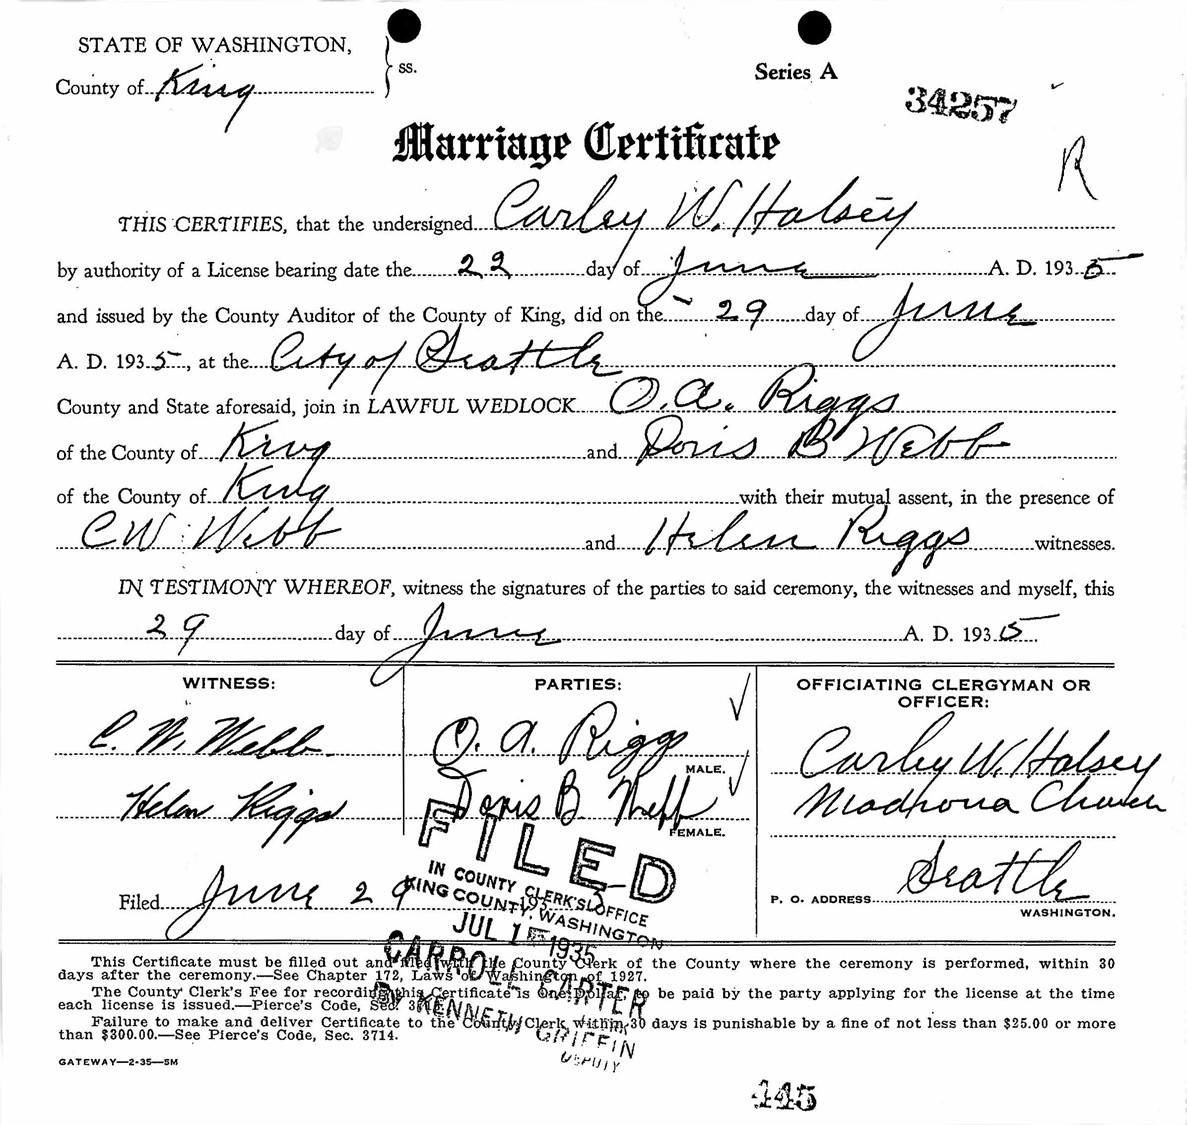 STATE OF WASHINGTON,
ss.
County of King
Series A
34257
R
Marriage Certificate
THIS CERTIFIES, that the undersigned Carley W. Halsey
by authority of a License bearing date the 22 day of June A. D. 1935
and issued by the County Auditor of the County of King, did on the 29 day of June
A. D. 1935, at the City of Seattle
County and State aforesaid, join in LAWFUL WEDLOCK O.A. Riggs
of the County of King and Doris B Webb
of the County of King with their mutual assent, in the presence of
CW Webb and Helen Riggs witnesses.
IN TESTIMONY WHEREOF, witness the signatures of the parties to said ceremony, the witnesses and myself, this
29 day of June A. D. 1935
WITNESS:
C. W. Webb
Helen Riggs
PARTIES:
O. A. Riggs
MALE.
Doris B Webb
FEMALE.
OFFICIATING CLERGYMAN OR
OFFICER:
Carley W. Halsey
Madrona Church
Seattle
P. O. ADDRESS
WASHINGTON.
Filed June 29 1935
FILED
IN COUNTY CLERK'S OFFICE
KING COUNTY, WASHINGTON
JUL 1 1935
CARROLL CARTER
BY KENNETH GRIFFIN
DEPUTY
This Certificate must be filled out and filed with the County Clerk of the County where the ceremony is performed, within 30
days after the ceremony.—See Chapter 172, Laws of Washington of 1927.
The County Clerk's Fee for recording this Certificate is One Dollar, to be paid by the party applying for the license at the time
each license is issued.—Pierce's Code, Sec.
Failure to make and deliver Certificate to the County Clerk within 30 days is punishable by a fine of not less than $25.00 or more
than $300.00.—See Pierce's Code, Sec. 3714.
GATEWAY—2-35—5M
445